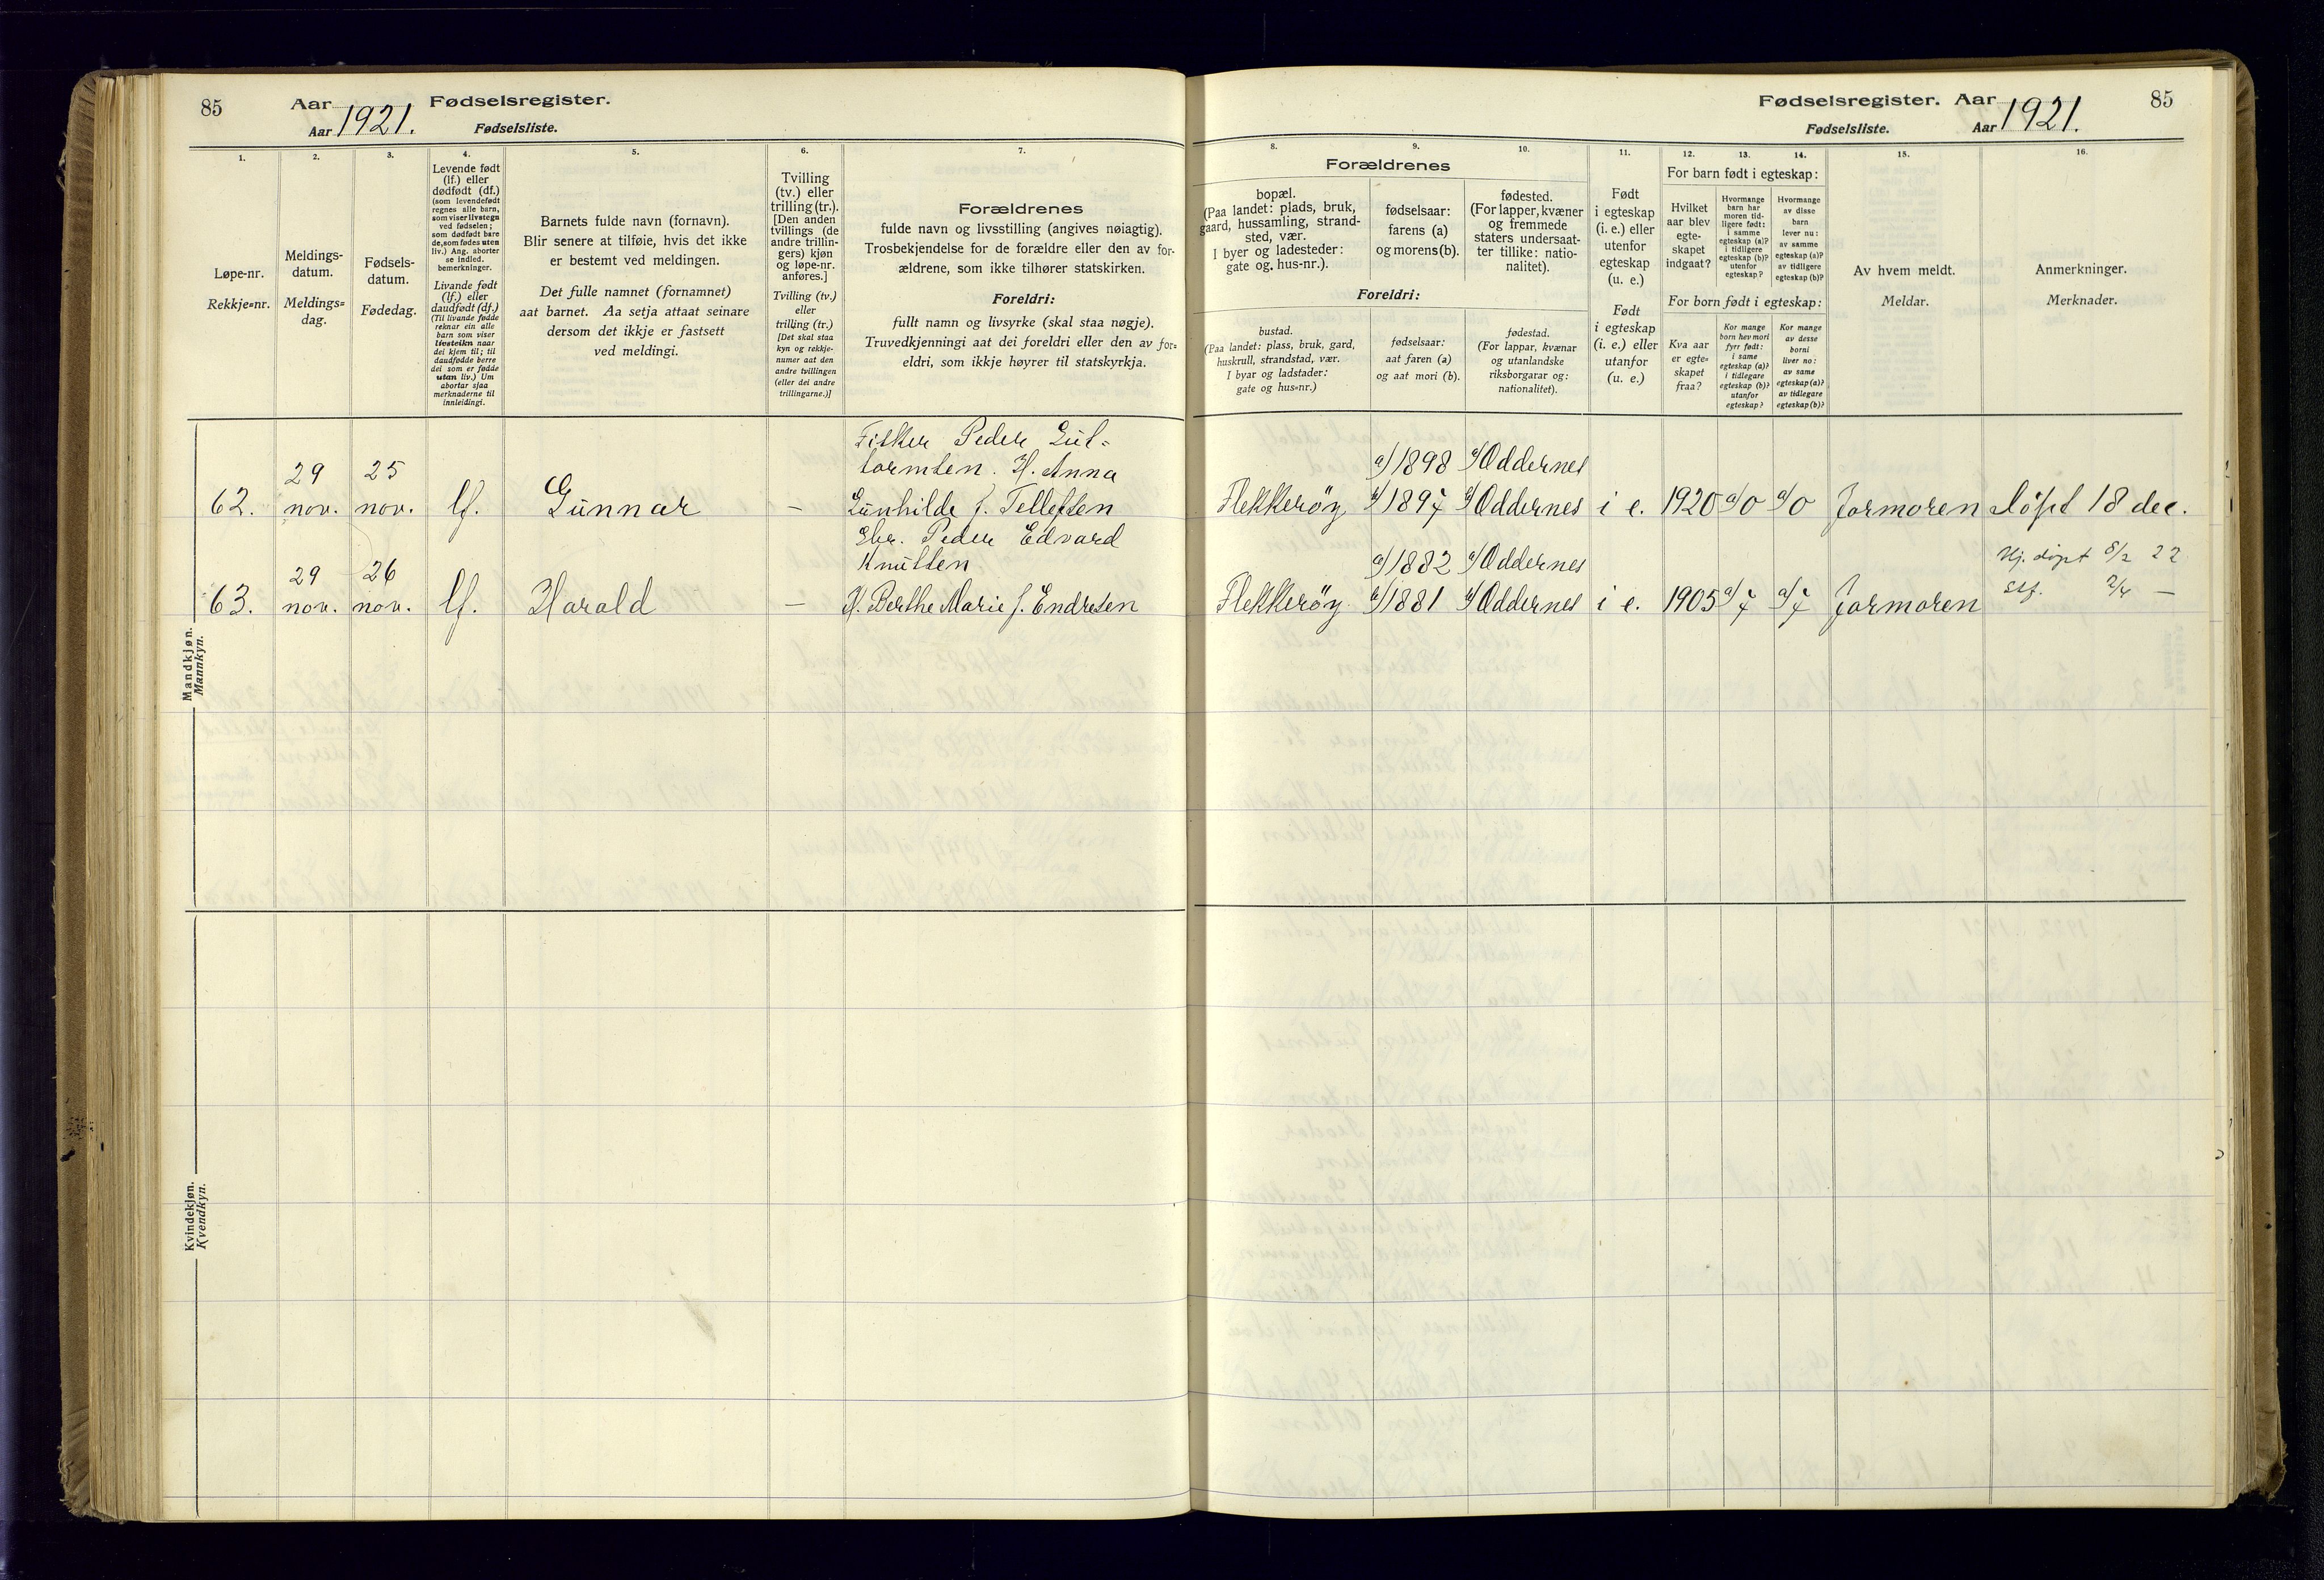 85 Aar 1921. Fødselsregister.
Aar Fødselsliste.
1. 2. 3. 4. 5. 6. 7.
Løpe-nr.
Rekkje=nr.
Meldings-
datum.
Meldings=
dag.
Fødsels-
datum.
Fødedag.
Levende født
(lf.) eller
dødfødt (df.)
(som levendefødt
regnes alle barn,
som viser livstegn
ved fødselen;
som dødfødt bare
de, som fødes uten
liv.) Ang. aborter
se indled.
bemerkninger.
Livande født
(lf.) eller
daudfødt (df.)
(Til livande fødde
reknar ein alle
barn som viser
livsteikn naar
dei kjem til; til
daudfødde berre
dei som er fødde
utan liv.) Um
abortar sjaa
merknaderne til
innleidingi.
Barnets fulde navn (fornavn).
Blir senere at tilføie, hvis det ikke
er bestemt ved meldingen.
Det fulle namnet (fornamnet)
aat barnet. Aa setja attaat seinare
dersom det ikkje er fastsett
ved meldingi.
Tvilling
(tv.) eller
trilling (tr.).
[Den anden
tvillings (de
andre trillin-
gers) kjøn
og løpe-nr.
anføres.]
Tvilling (tv.)
eller
trilling (tr.)
[Det skal staa
kyn og rekkje-
numer aat den
andre tvillingen
(eller dei andre
trillingarne.)]
Forældrenes
fulde navn og livsstilling (angives nøiagtig).
Trosbekjendelse for de forældre eller den av for-
ældrene, som ikke tilhører statskirken.
Foreldri:
fullt namn og livsyrke (skal staa nøgje).
Truvedkjenningi aat dei foreldri eller den av for=
eldri, som ikkje høyrer til statskyrkja.
Mandkjøn.
Mannkyn.
62. 29 nov. 25 nov. lf. Gunnar —
Fisker Peder Gut-
tormsen. H. Anna
Gunhilde f. Tellefsen
63. 29 nov. 26 nov. lf. Harald —
Gbr. Peder Edvard
Knutsen
H. Berthe Marie f. Endresen
Kvindekjøn.
Kvendkyn.
Fødselsregister. Aar 1921. 85
Fødselsliste. Aar
8. 9. 10. 11. 12. 13. 14. 15. 16.
Forældrenes
bopæl.
(Paa landet: plads, bruk,
gaard, hussamling, strand-
sted, vær.
I byer og ladesteder:
gate og. hus-nr.).
fødselsaar:
farens (a)
og morens (b).
fødested.
(For lapper, kvæner
og fremmede
staters undersaat-
ter tillike: natio-
nalitet).
Foreldri:
bustad.
(Paa landet: plass, bruk, gard,
huskrull, strandstad, vær.
I byar og ladstader:
gate og hus=nr.)
fødselsaar:
aat faren (a)
og aat mori (b).
fødestad.
(For lappar, kvænar
og utanlandske
riksborgarar og:
nationalitet).
Født
i egteskap
(i. e.) eller
utenfor
egteskap
(u. e.)
Født
i egteskap
(i. e.) eller
utanfor
(u. e.)
For barn født i egteskap:
Hvilket
aar blev
egte-
skapet
indgaat?
Hvormange
barn har
moren tid-
ligere født:
i samme
egteskap (a)?
i tidligere
egteskap (b)?
utenfor
egteskap?
Hvormange
av disse
barn
lever nu:
av samme
egteskap (a)?
av tidligere
egteskap (b)?
For born født i egteskap:
Kva aar
er egte=
skapet
fraa?
Kor mange
born hev mori
fyrr født:
i same
egteskap (a)?
i tidlegare
egteskap (b)?
utanfor
egteskap?
Kor mange
av desse
borni
liver no:
av same
egteskap (a)?
av tidlegare
egteskap (b)?
Av hvem meldt.
Meldar.
Anmerkninger.
Merknader.
a) 1898 a) Oddernes
Flekkerøy b) 1897 b) Oddernes i e. 1920 a) 0 a) 0 Jormoren Døpt 18 dec.
a) 1882 a) Oddernes Hj. døpt 8/2 22
Flekkerøy b) 1881 b) Oddernes i e. 1905 a) 7 a) 7 Jormoren Stf. 2/4 —